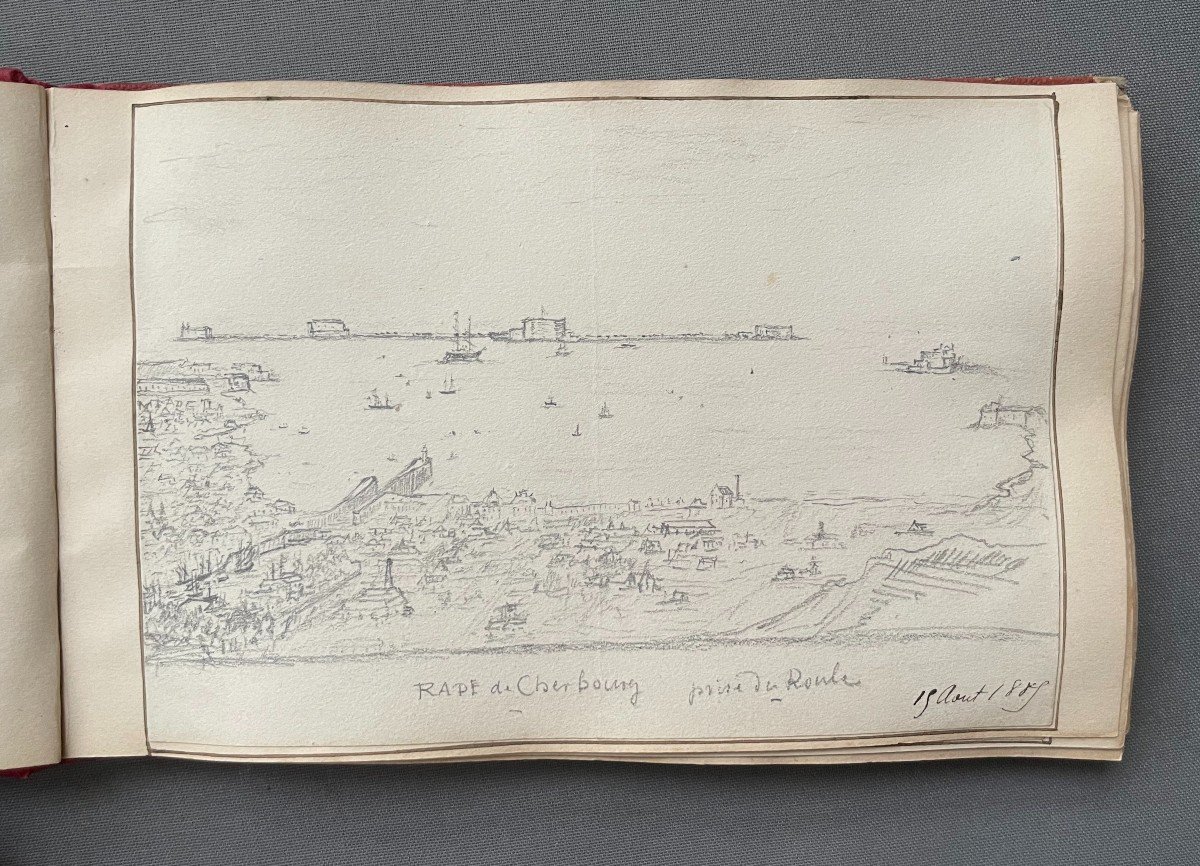 RADE de Cherbourg prise du Roule
15 Aout 1885